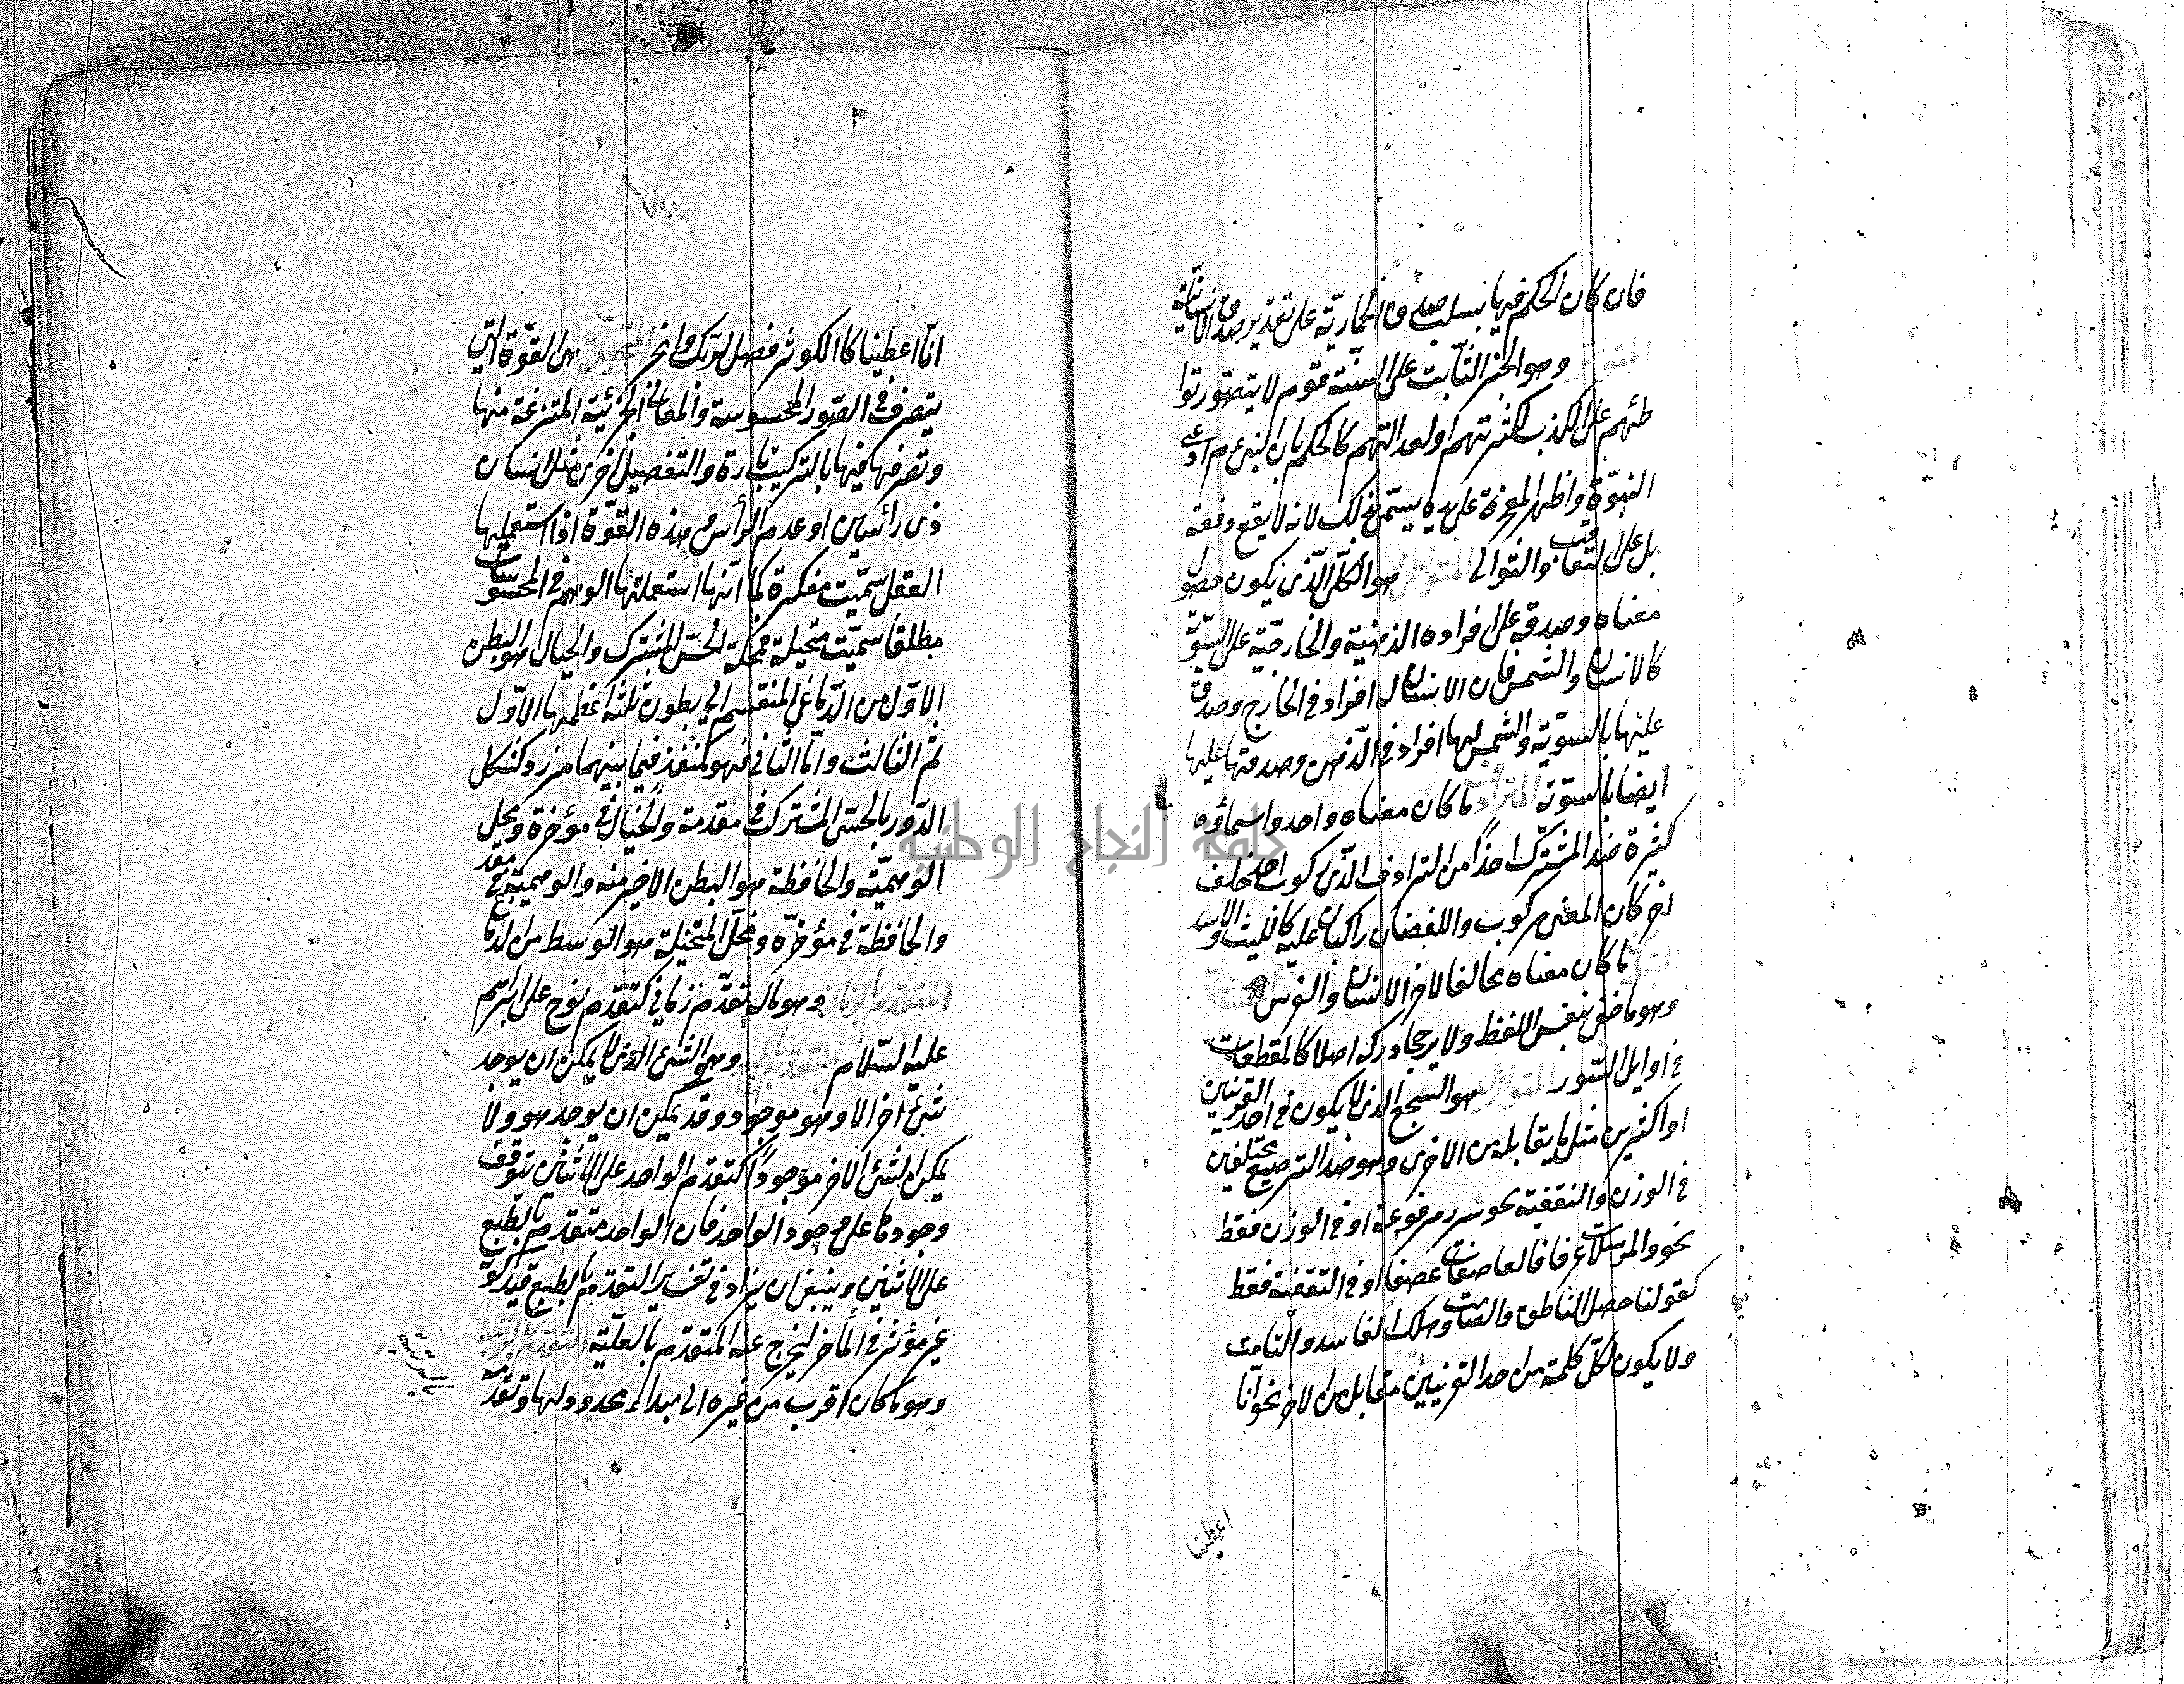 فان كان الحكم فيها بسلب صدق الحمارية على تقدير صدق الانسانية
المتواتر وهو الخبر الثابت على السنة قوم لا يتصور توا
طئهم على الكذب لكثرتهم او لعدالتهم كالحكم بان النبى م ادعى
النبوة واظهر المعجزة على يده يسمى بذلك لانه لا يقع دفعة
بل على التعاقب والتوالى المتواطى هو الكلى الذى يكون حصول
معناه وصدقه على افراده الذهنية والخارجية على السوية
كالانسان والشمس فان الانسان له افراد فى الخارج وصدقه
عليها بالسوية والشمس لها افراد فى الذهن وصدقها عليها
ايضا بالسوية المترادف ما كان معناه واحد واسماؤه
كثيرة ضد المشترك اخذا من الترادف الذى ركوب احد خلف
اخر كان المعنى مركوب واللفضان راكبان عليه كالليث والاسد
المتباين ما كان معناه مخالفا لاخر الانسان والفرس المتشابه
وهو ما خفى بنفس اللفظ ولا يرجى دركه اصلا كالمقطعات
فى اوايل السور المتوازى هو السجع الذى لا يكون فى احدى القرينتين
او اكثر من مثل ما يقابله من الاخرى وهو ضد الترصيع مختلفين
فى الوزن والتقفية نحو سرر مرفوعة او فى الوزن فقط
نحو والمرسلات عرفا فالعاصفات عصفا او فى التقفية فقط
كقولنا حصل الناطق والصامت وهلك الفاسد والنامت
ولا يكون لكل كلمة من احد القرينتين مقابل من الاخر نحو انا
اعطينا
انا اعطيناكا الكوثر فصل لربك وانحر المتخيلة هى القوة التى
يتصرف فى الصور المحسوسة والمعانى الجزئية المتنزعة منها
وتصرفها فيها بالتركيب تارة والتفصيل اخرى مثل انسان
ذى رأسين او عدم الرأس وهذه القوة اذا استعملها
العقل سميت مفكرة كما انها استعملتها الوهم فى المحسوسات
مطلقا سميت متخيلة فمحلة الحس المشترك والخيال هو البطن
الاول من الدماغ المنقسم الى بطون ثلثة اعظمها الاول
ثم الثالث واما الثانى فهو كمنفذ فيما بينهما مزرد كشكل
الدور بالحس المشترك فى مقدمة والخيال فى مؤخرة ومحل
الوهمية والحافظة هو البطن الاخير منه والوهمية فى مقدمه
والحافظة فى مؤخره ومحل المتخيلة هو الوسط من الدماغ
المتقدم بالزمان وهو ماله تقدم زمانى كتقدم نوح على ابراهيم
عليه السلام المتقدم بالطبع وهو الشئ الذى لا يمكن ان يوجد
شئ اخر الا وهو موجود وقد يمكن ان يوجد هو ولا
يمكن الشئ الاخر موجودا كتقدم الواحد على الاثنين يتوقف
وجودها على وجود الواحد فان الواحد متقدم بالطبع
على الاثنين وينبغى ان يزاد فى تفسير المتقدم بالطبع قيد كونه
غير مؤثر فى المأخر ليخرج عنه المتقدم بالعلية المتقدم بالرتبة
وهو ما كان اقرب من غيره الى مبداء محدود لها وتقدمه
بالرتبة
جامعة النجاح الوطنية